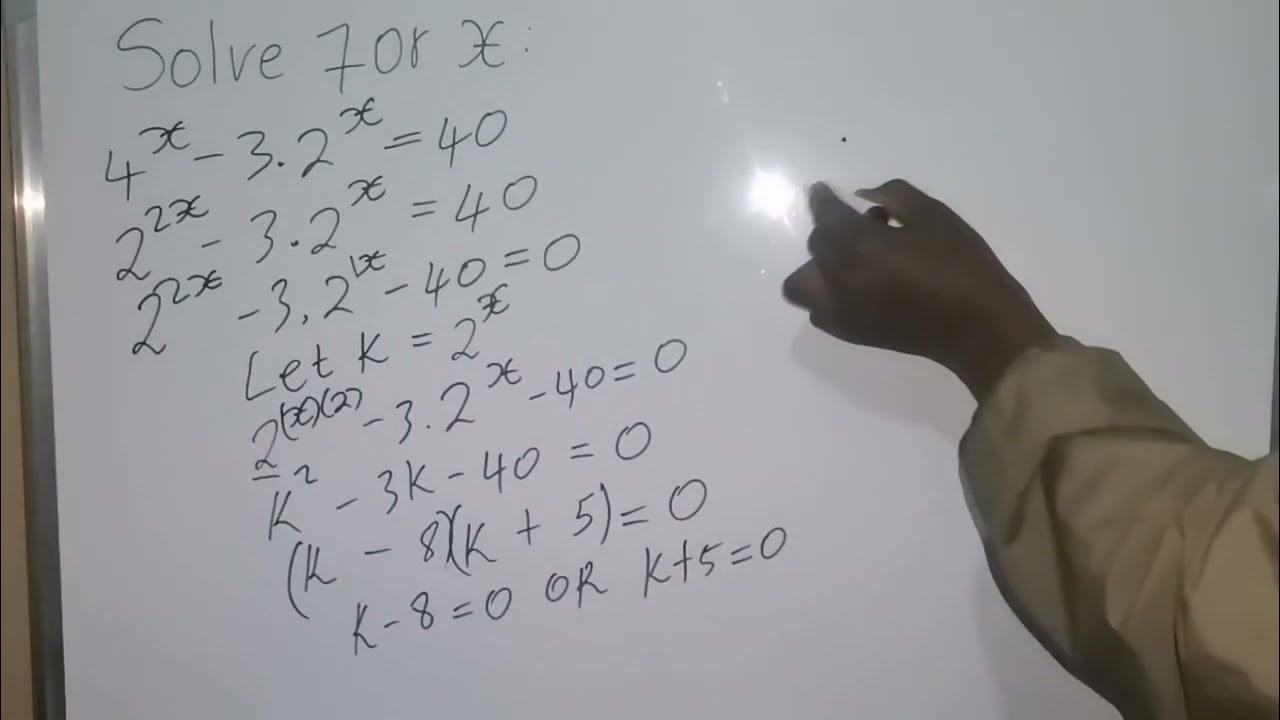 Solve for x:
4^x - 3.2^x = 40
2^2x - 3.2^x = 40
2^2x - 3.2^1x - 40 = 0
Let k = 2^x
2^(x)(2) - 3.2^x - 40 = 0
k^2 - 3k - 40 = 0
(k - 8)(k + 5) = 0
k - 8 = 0 OR k + 5 = 0